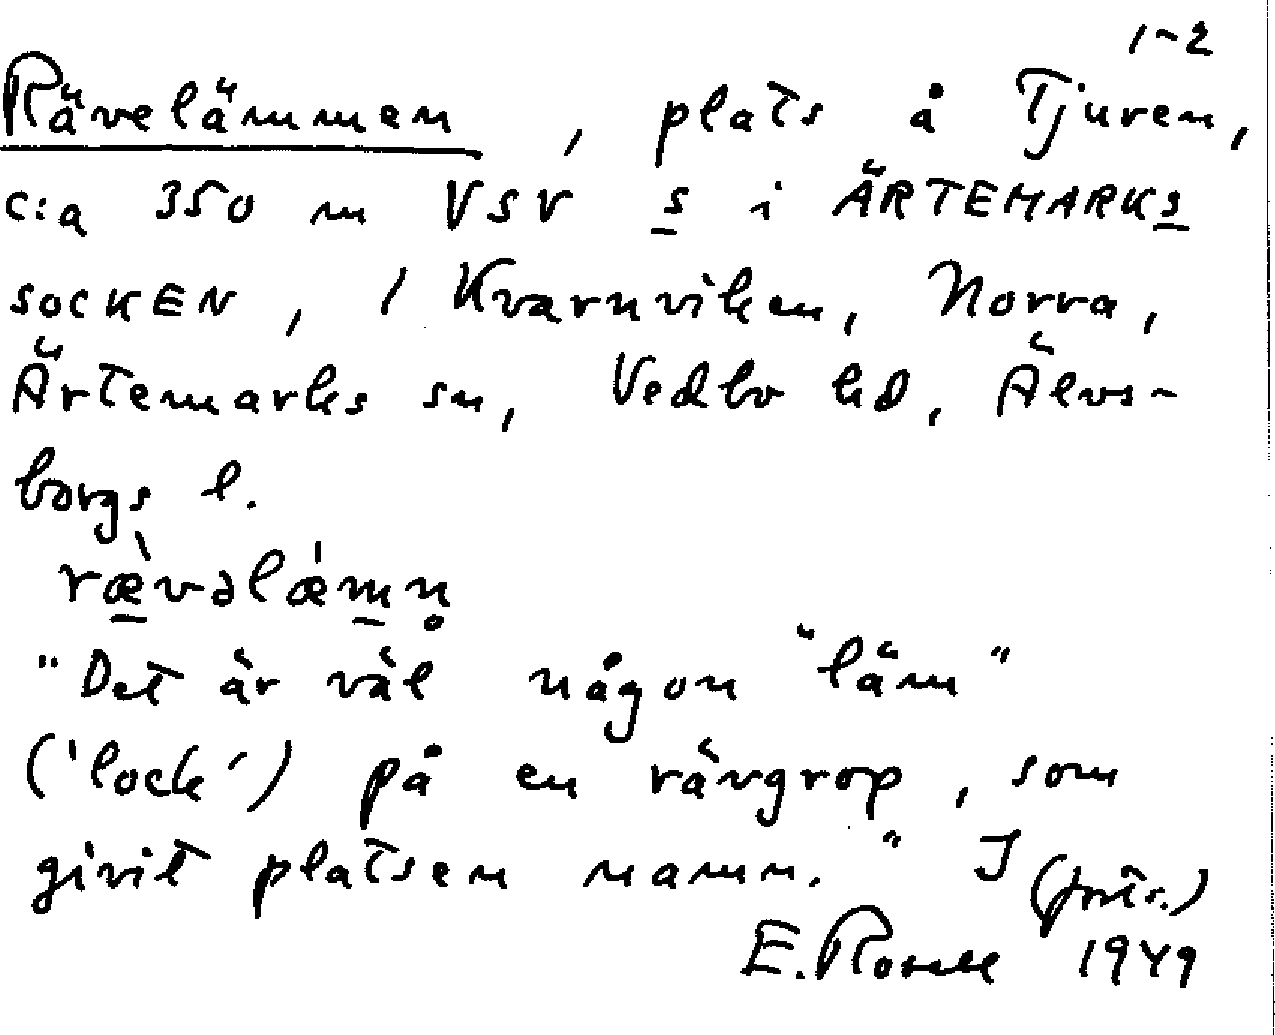 1-2
Rävelämmen, plats å Tjuren,
c:a 350 m VSV s i ÄRTEMARKS
SOCKEN, 1 Kvarnviken, Norra,
Ärtemarks sn, Vedbo hd, Älvs-
borgs l.
ræ̀vəlǽmn̥
"Det är väl någon "läm"
('lock') på en rävgrop, som
givit platsen namn." J
E. Rosell 1949